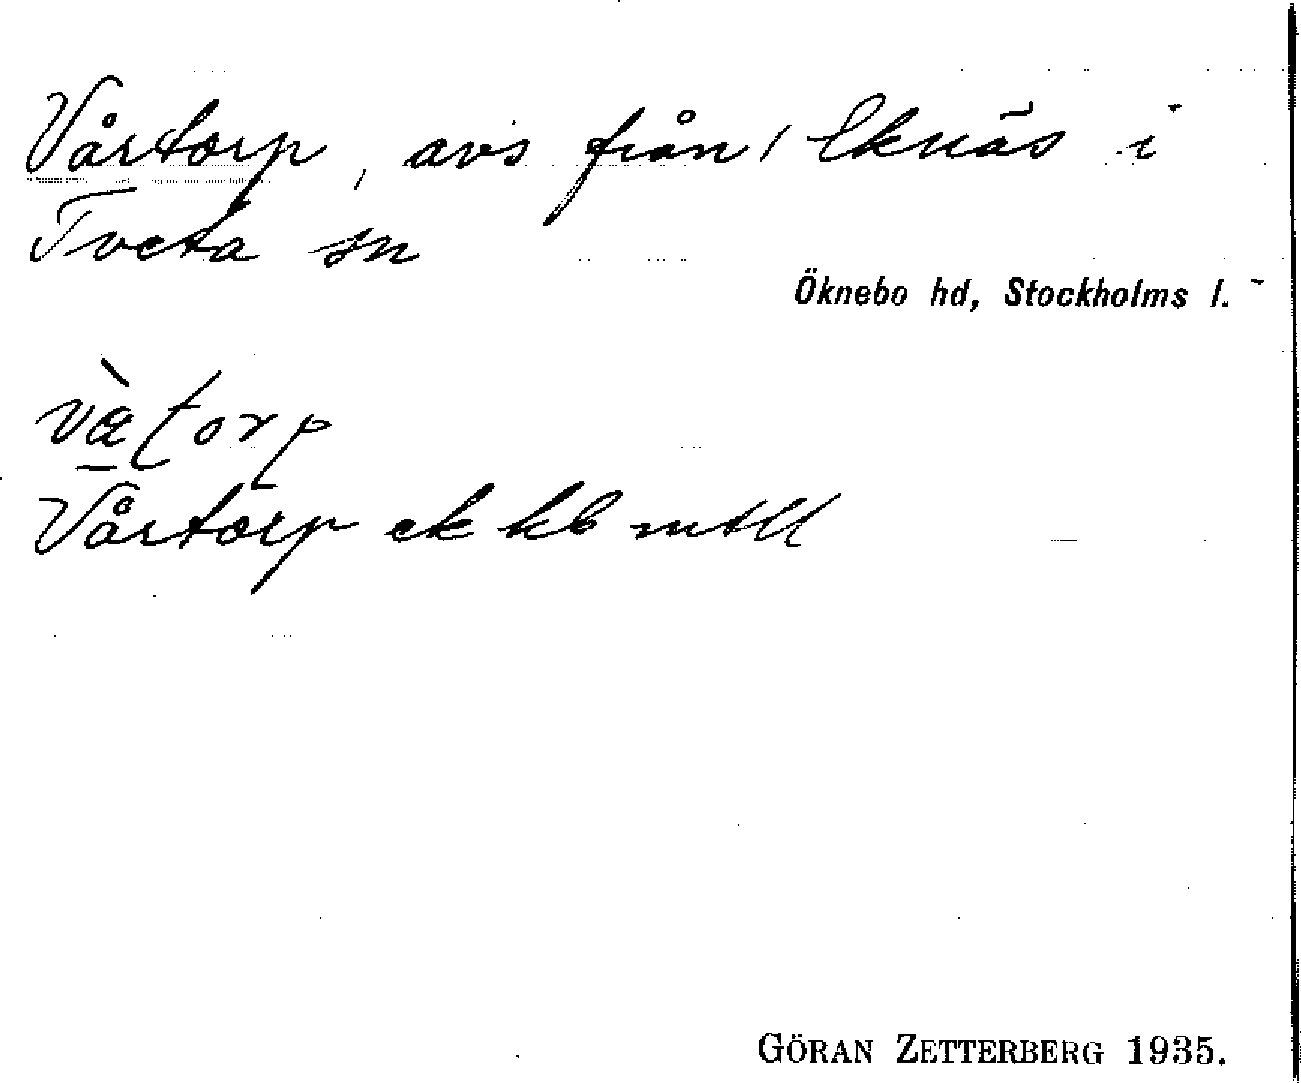 Vårtorp, avs från Eknäs i
Tveta sn
Öknebo hd, Stockholms l.
vætorp
Vårtorp ek kb mtll
GÖRAN ZETTERBERG 1935.